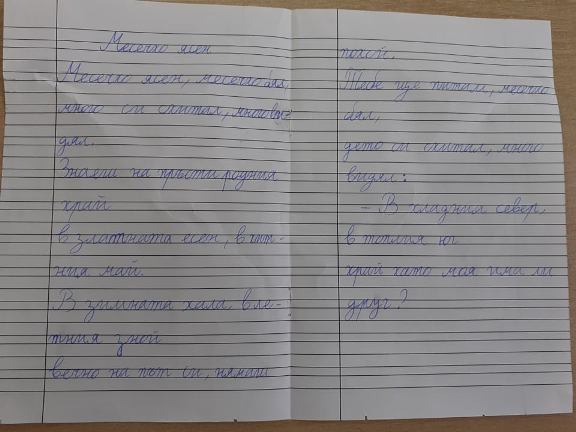 Месечко ясен
Месечко ясен, месечко бял,
много си скитал, много ви-
дял.
Знаеш на пръсти родния
край
в златната есен, в цвет-
ния май.
В зимната хала, в ле-
тния зной
вечно на път си, нямаш
покой.
Тебе ще питам, месечко
бял,
дето си скитал, много
видял:
– В хладния север,
в топлия юг
край като моя има ли
друг?